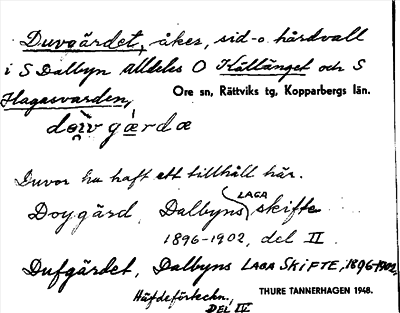 Duvgärdet, åker, sid- o. hårdvall
i S Dalbyn alldeles O Källänget och S
Hagasvarden,
Ore sn, Rättviks tg, Kopparbergs län.
Duvor ha haft ett tillhåll här.
Doygärd, Dalbyns LAGA skifte
1896-1902, del II.
Dufgärdet, Dalbyns LAGA SKIFTE, 1896-1902,
Häfdeförteckn.,
DEL IV
THURE TANNERHAGEN 1948.